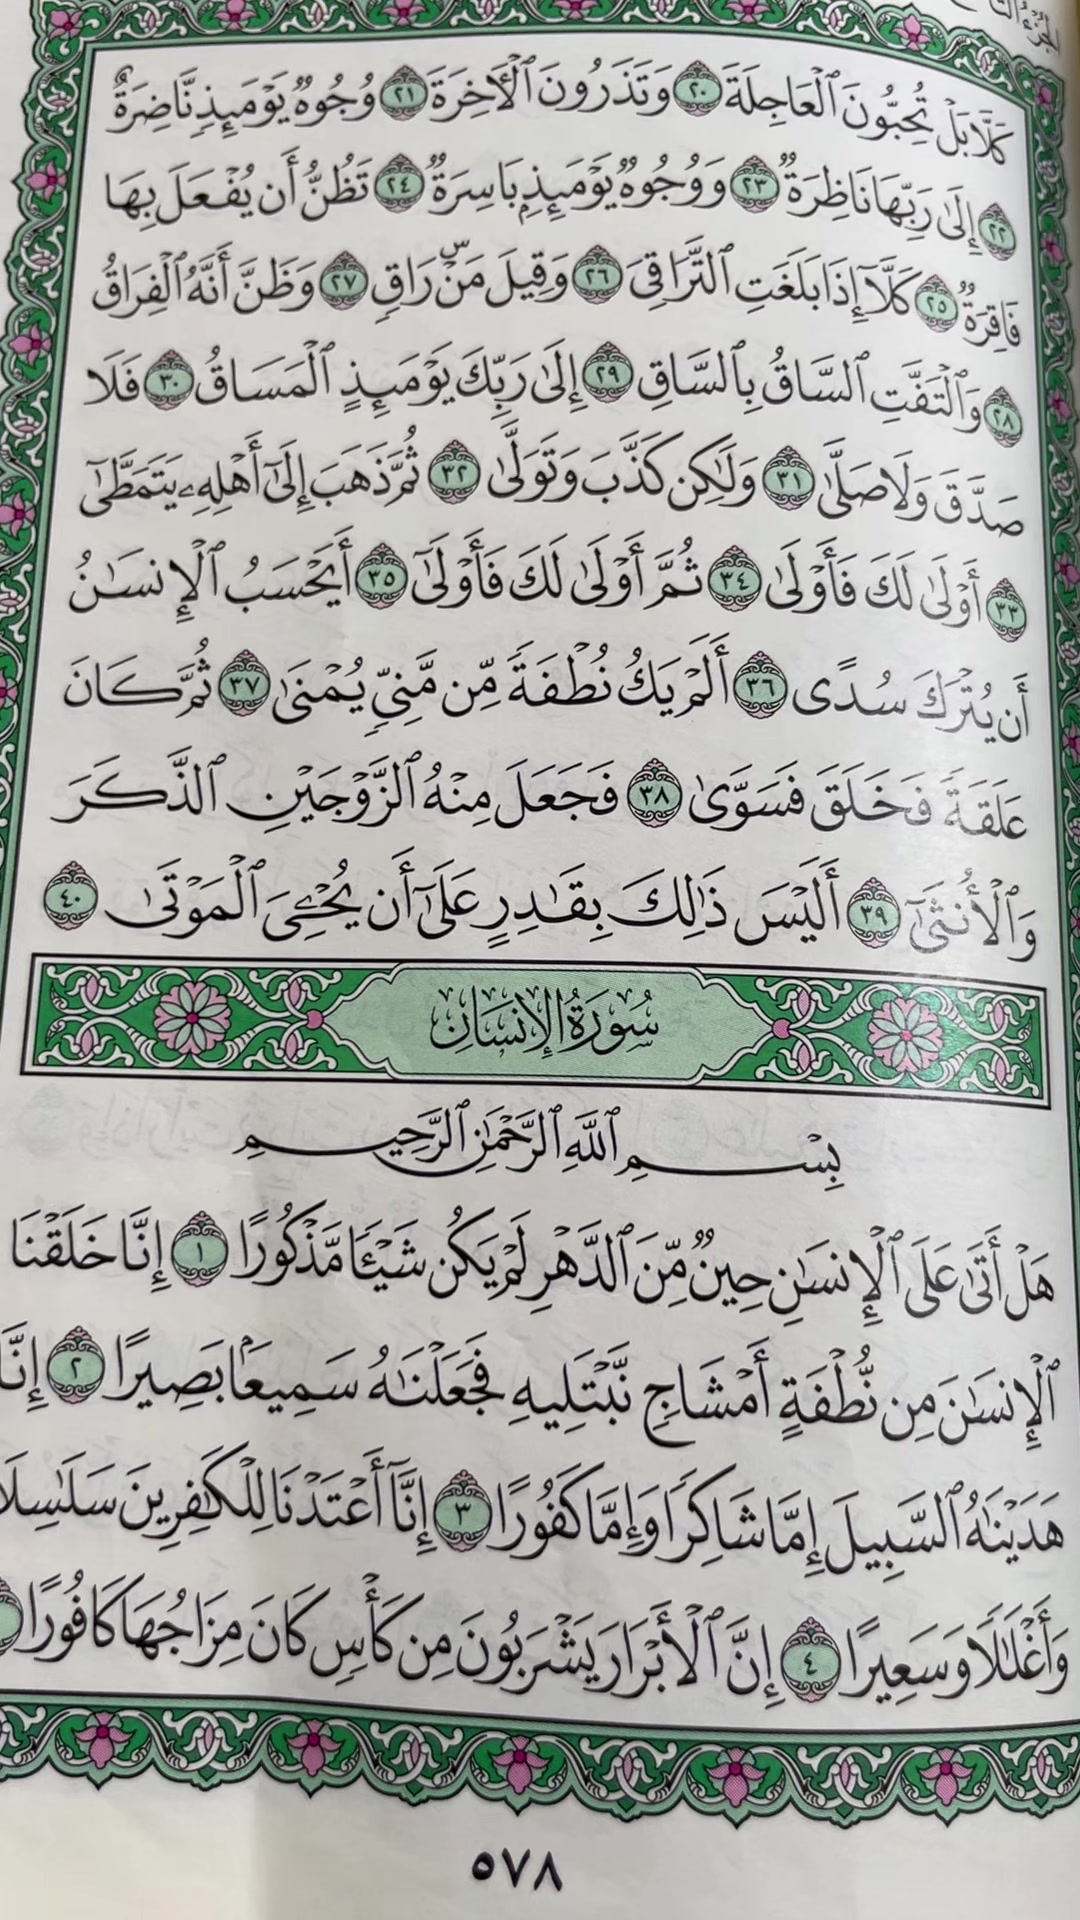 الجزء التا
كَلَّا بَلْ تُحِبُّونَ ٱلْعَاجِلَةَ ٢٠ وَتَذَرُونَ ٱلْأَخِرَةَ ٢١ وُجُوهٌ يَوْمَئِذٍ نَّاضِرَةٌ
٢٢ إِلَىٰ رَبِّهَا نَاظِرَةٌ ٢٣ وَوُجُوهٌ يَوْمَئِذٍۭ بَاسِرَةٌ ٢٤ تَظُنُّ أَن يُفْعَلَ بِهَا
فَاقِرَةٌ ٢٥ كَلَّآ إِذَا بَلَغَتِ ٱلتَّرَاقِىَ ٢٦ وَقِيلَ مَنْۜ رَاقٍ ٢٧ وَظَنَّ أَنَّهُ ٱلْفِرَاقُ
٢٨ وَٱلْتَفَّتِ ٱلسَّاقُ بِٱلسَّاقِ ٢٩ إِلَىٰ رَبِّكَ يَوْمَئِذٍ ٱلْمَسَاقُ ٣٠ فَلَا
صَدَّقَ وَلَا صَلَّىٰ ٣١ وَلَٰكِن كَذَّبَ وَتَوَلَّىٰ ٣٢ ثُمَّ ذَهَبَ إِلَىٰٓ أَهْلِهِۦ يَتَمَطَّىٰٓ
٣٣ أَوْلَىٰ لَكَ فَأَوْلَىٰ ٣٤ ثُمَّ أَوْلَىٰ لَكَ فَأَوْلَىٰٓ ٣٥ أَيَحْسَبُ ٱلْإِنسَٰنُ
أَن يُتْرَكَ سُدًى ٣٦ أَلَمْ يَكُ نُطْفَةً مِّن مَّنِىٍّ يُمْنَىٰ ٣٧ ثُمَّ كَانَ
عَلَقَةً فَخَلَقَ فَسَوَّىٰ ٣٨ فَجَعَلَ مِنْهُ ٱلزَّوْجَيْنِ ٱلذَّكَرَ
وَٱلْأُنثَىٰٓ ٣٩ أَلَيْسَ ذَٰلِكَ بِقَٰدِرٍ عَلَىٰٓ أَن يُحْـِۧىَ ٱلْمَوْتَىٰ ٤٠
سُورَةُ الإِنسَانِ
بِسْمِ ٱللَّهِ ٱلرَّحْمَٰنِ ٱلرَّحِيمِ
هَلْ أَتَىٰ عَلَى ٱلْإِنسَٰنِ حِينٌ مِّنَ ٱلدَّهْرِ لَمْ يَكُن شَيْـًٔا مَّذْكُورًا ١ إِنَّا خَلَقْنَا
ٱلْإِنسَٰنَ مِن نُّطْفَةٍ أَمْشَاجٍ نَّبْتَلِيهِ فَجَعَلْنَٰهُ سَمِيعًۢا بَصِيرًا ٢ إِنَّا
هَدَيْنَٰهُ ٱلسَّبِيلَ إِمَّا شَاكِرًا وَإِمَّا كَفُورًا ٣ إِنَّآ أَعْتَدْنَا لِلْكَٰفِرِينَ سَلَٰسِلَا۟
وَأَغْلَٰلًا وَسَعِيرًا ٤ إِنَّ ٱلْأَبْرَارَ يَشْرَبُونَ مِن كَأْسٍ كَانَ مِزَاجُهَا كَافُورًا
٥٧٨